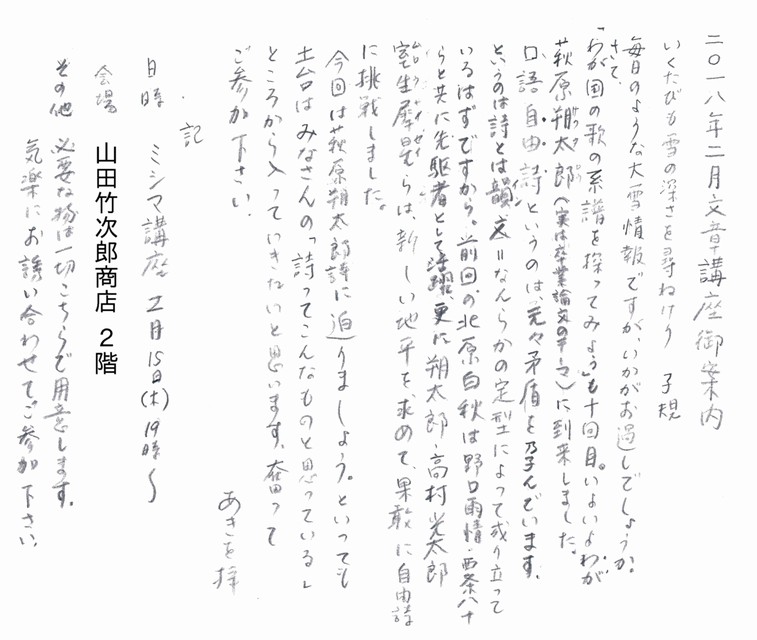 二〇一八年二月文章講座御案内
いくたびも雪の深さを尋ねけり　子規
毎日のような大雪情報ですが、いかがお過しでしょうか。
さて、
「わが国の歌の系譜を探ってみよう」も十回目。いよいよわが
萩原朔太郎(実は卒業論文のテーマ)に到来しました。
口語自由詩というのは、元々矛盾を孕んでいます。
というのは詩とは韻文＝なんらかの定型によって成り立って
いるはずですから。前回の北原白秋は野口雨情・西条八十
らと共に先駆者として活躍、更に朔太郎・高村光太郎
室生犀星らは、新しい地平を求めて、果敢に自由詩
に挑戦しました。
今回は萩原朔太郎詩に迫りましょう。といっても
土台はみなさんの「詩ってこんなものと思っている」
ところから入っていきたいと思います。奮って
ご参加下さい。
あきを拝
記
日時　ミシマ講座　2月15日(木)19時〜
会場　山田竹次郎商店　2階
その他　必要な物は一切こちらで用意します。
気楽にお誘い合わせてご参加下さい。